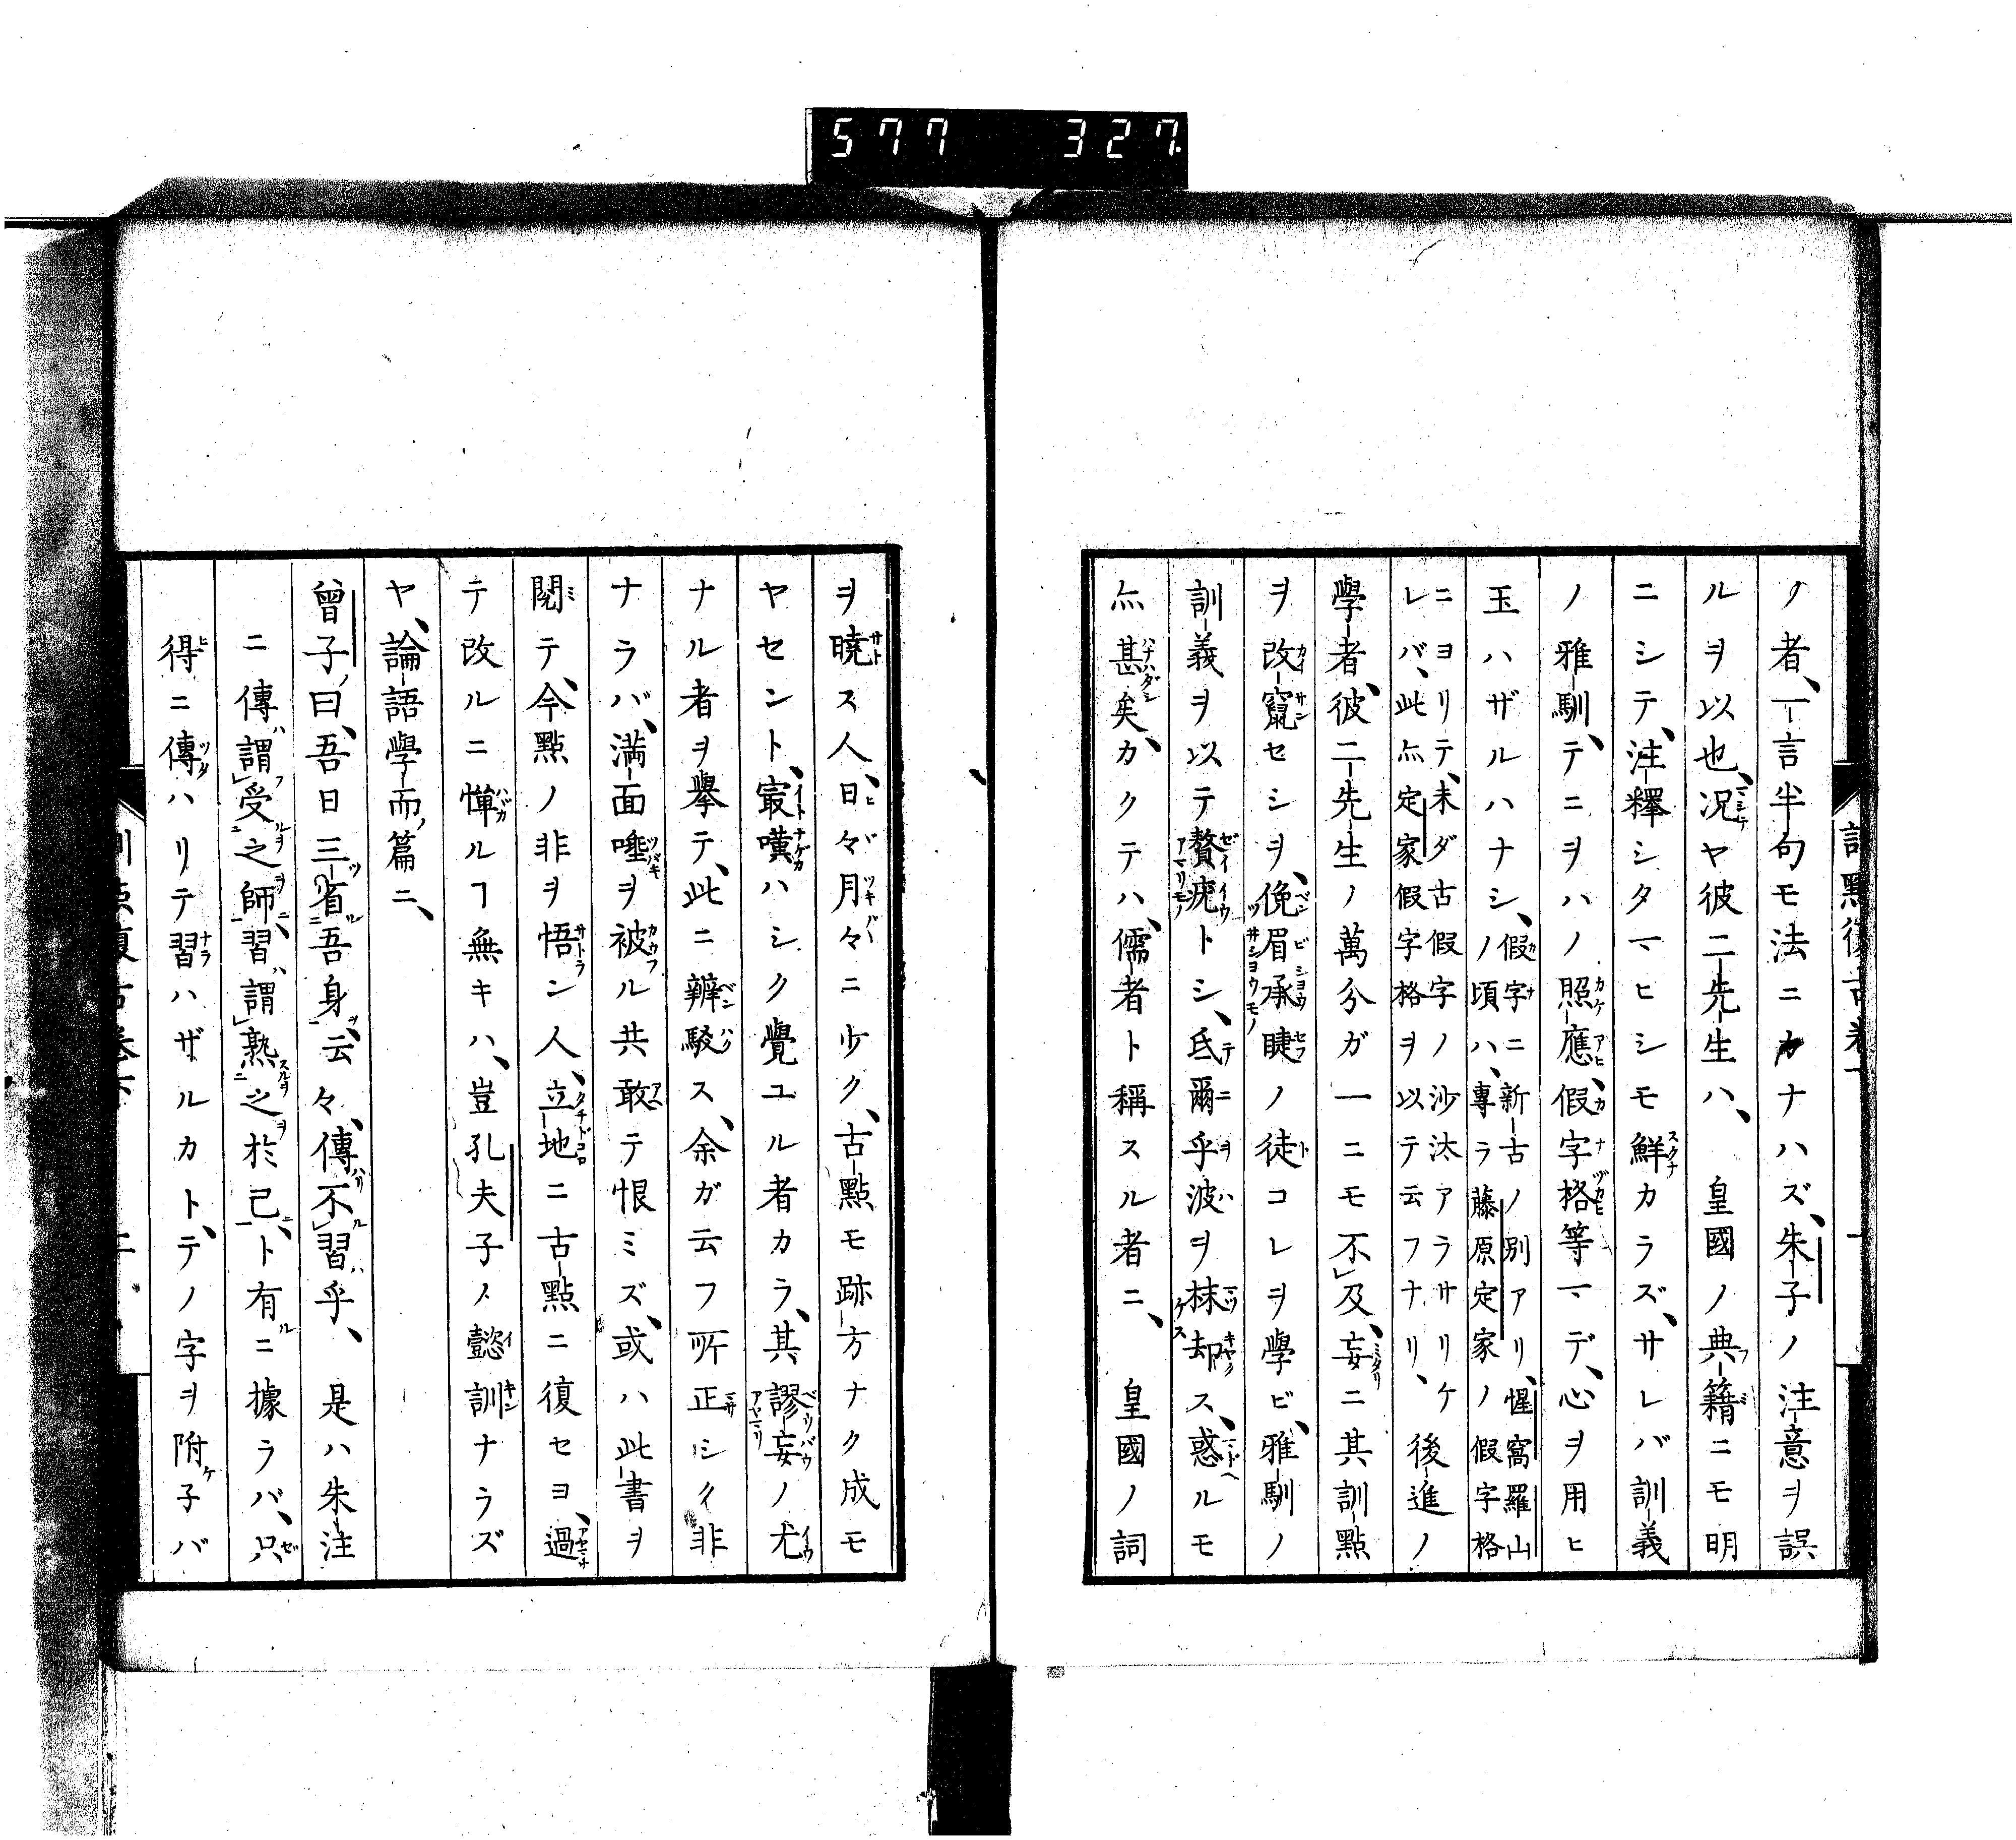 577 327.
ノ者、一言半句モ法ニカナハズ、朱子ノ注意ヲ誤
ルヲ以也、况ヤ彼二先生ハ、皇國ノ典籍ニモ明
ニシテ、注釋シタマヒシモ鮮カラズ、サレバ訓義
ノ雅馴、テニヲハノ照應、假字格等マデ、心ヲ用ヒ
玉ハザルハナシ、假字ニ新古ノ別アリ、惺窩羅山
ノ頃ハ、專ラ藤原定家ノ假字格
ニヨリテ、未ダ古假字ノ沙汰アラサリケ
レバ、此亦定家假字格ヲ以テ云フナリ、後進ノ
學者、彼二先生ノ萬分ガ一ニモ不及、妄ニ其訓點
ヲ改竄セシヲ、俛眉承睫ノ徒コレヲ學ビ、雅馴ノ
訓義ヲ以テ贅疣トシ、氐爾乎波ヲ抹却ス、惑ルモ
亦甚矣、カクテハ、儒者ト稱スル者ニ、皇國ノ詞
ヲ曉ス人、日々月々ニ少ク、古點モ跡方ナク成モ
ヤセント、㝡嘆ハシク覺ユル者カラ、其謬妄ノ尤
ナル者ヲ擧テ、此ニ辨駁ス、余ガ云フ所正シク非
ナラバ、満面唾ヲ被ル共敢テ恨ミズ、或ハ此書ヲ
閲テ、今點ノ非ヲ悟ン人、立地ニ古點ニ復セヨ、過
テ改ルニ憚ルヿ無キハ、豈孔夫子ノ懿訓ナラズ
ヤ、論語學而篇ニ、
曾子ノ曰、吾日三省吾身、云々、傳不習乎、是ハ朱注
ニ傳謂受之師、習謂熟之於己、ト有ニ據ラバ、只
得ニ傳ハリテ習ハザルカト、テノ字ヲ附子バ